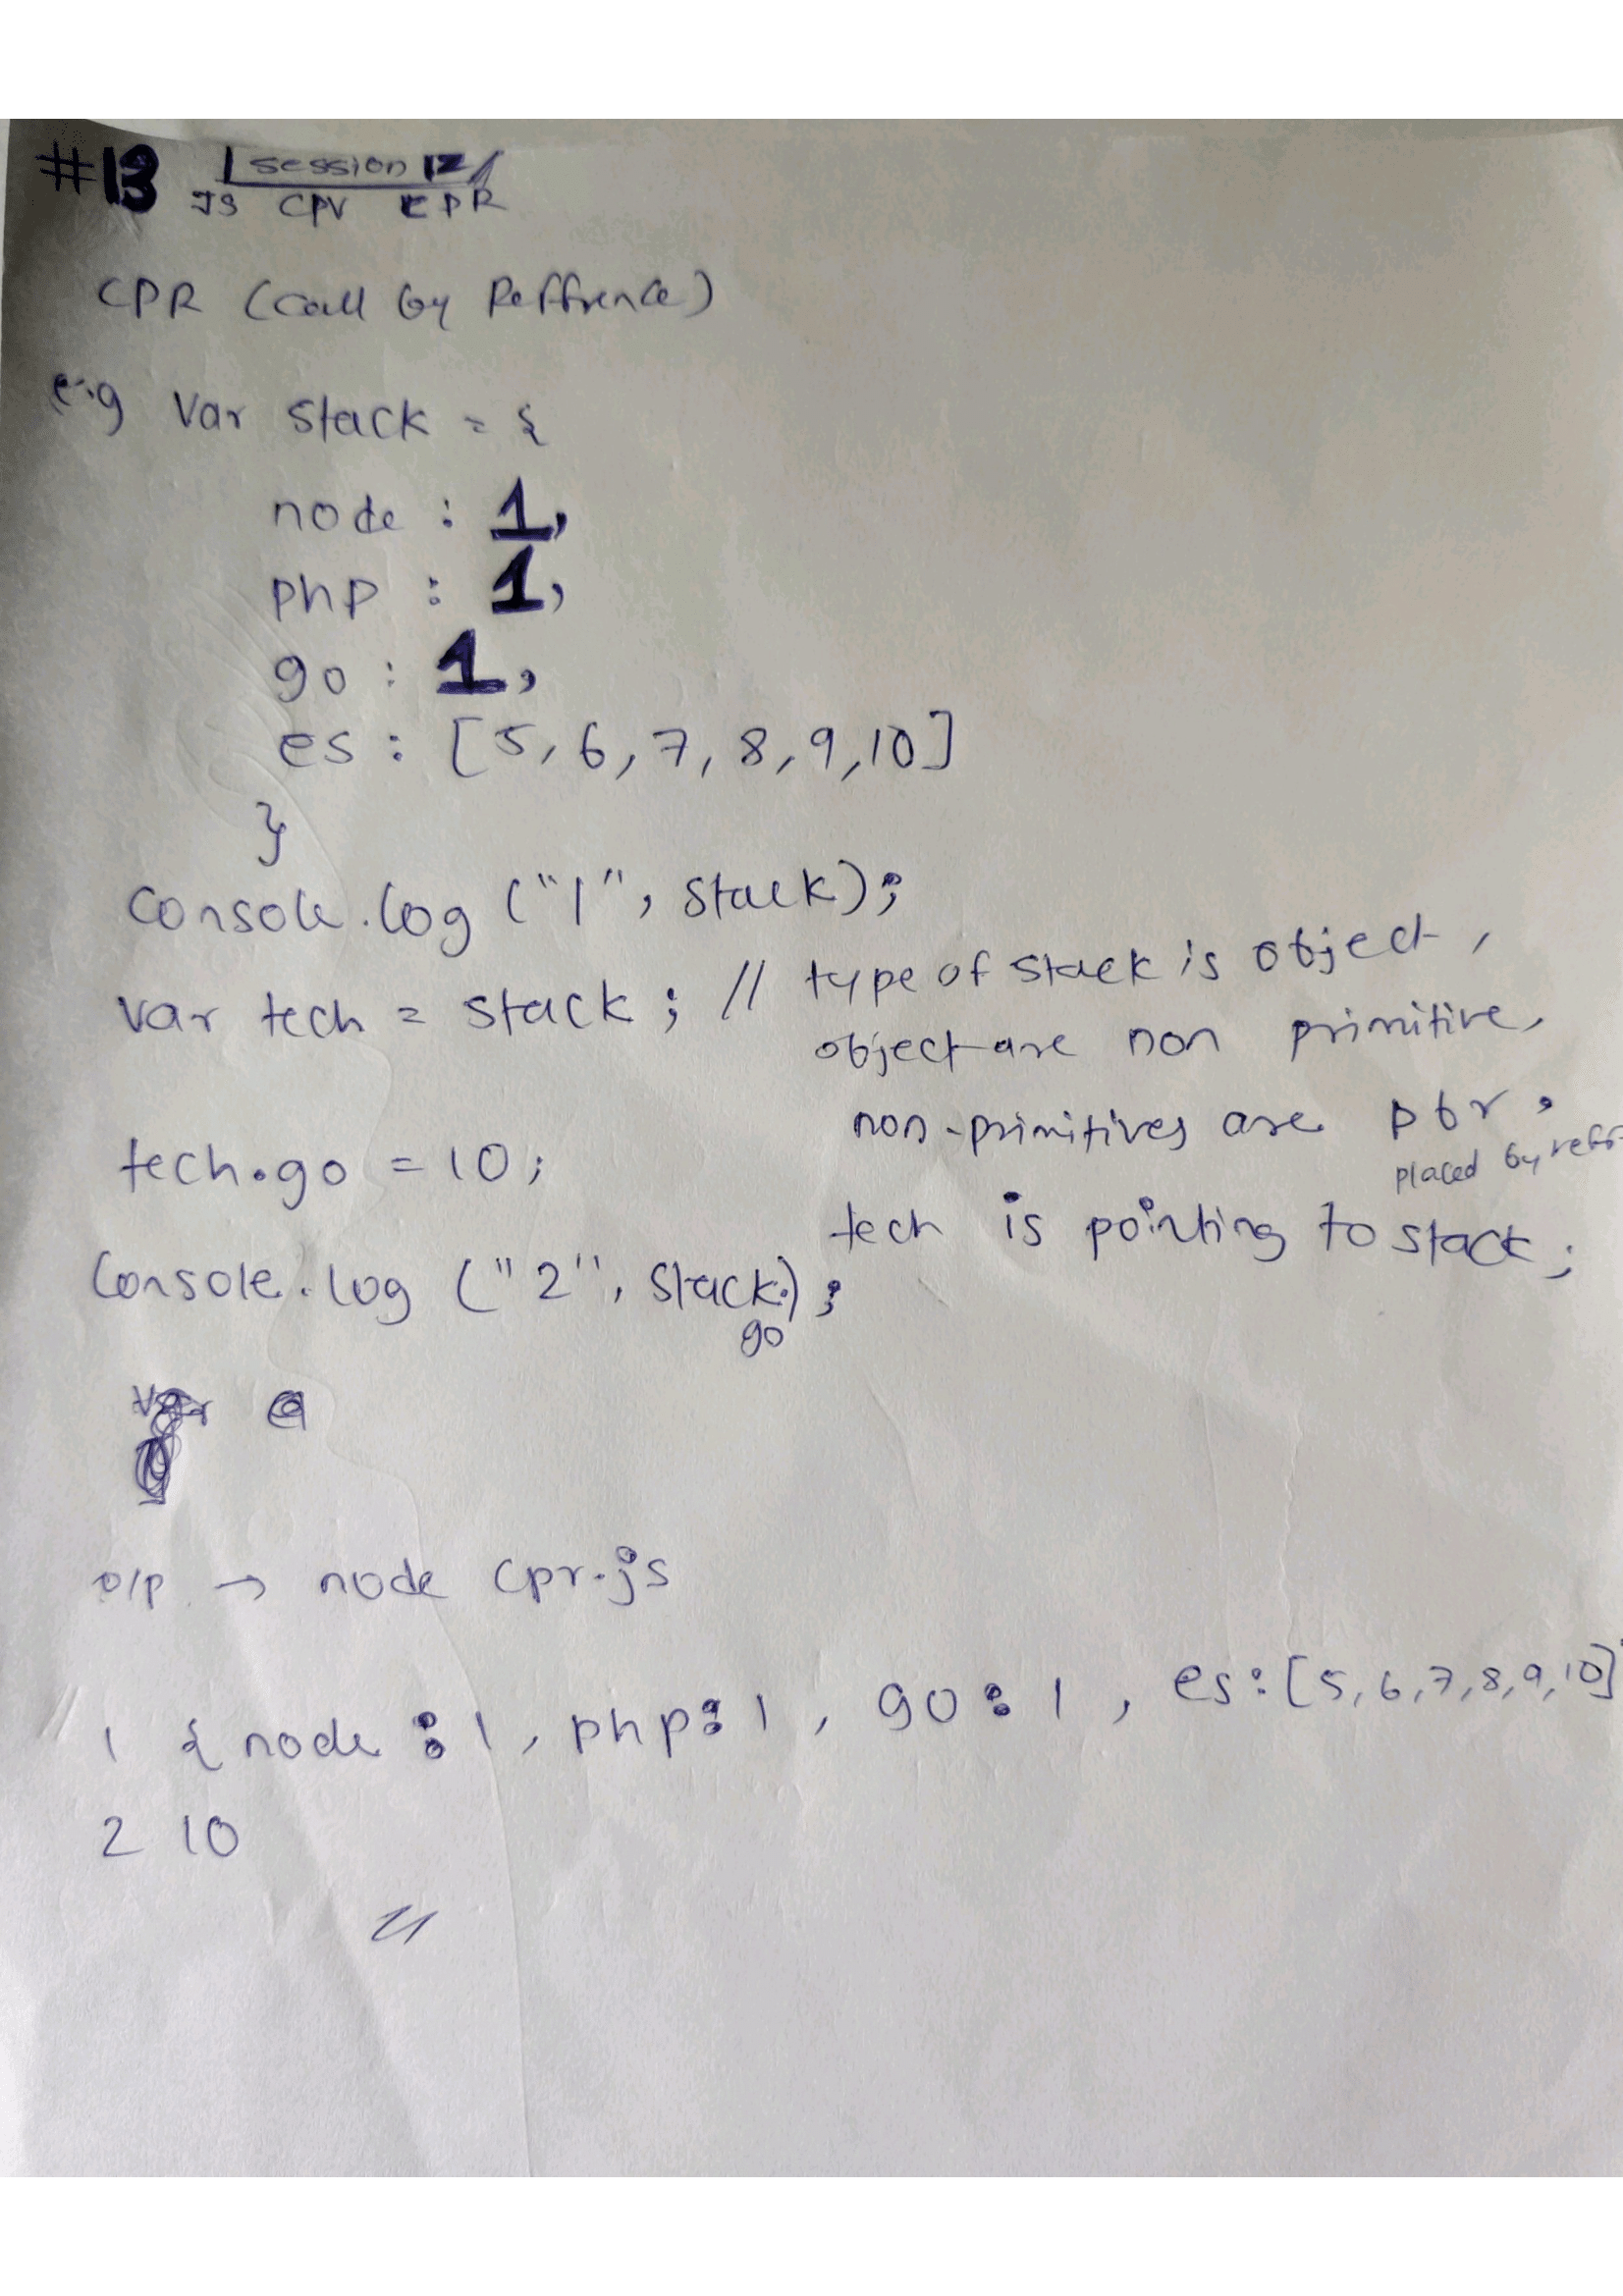 #13 session 12
JS CPV CPR
CPR (Call by Reffrence)
e.g var stack = {
node : 1,
php : 1,
go : 1,
es : [5, 6, 7, 8, 9, 10]
}
Console.log ("1", stack);
var tech = stack ; // type of stack is object,
object are non primitive,
non-primitives are pbr,
placed by
tech is pointing to stack;
tech.go = 10;
Console.log ("2", stack.);
go
o/p → node cpr.js
1 { node : 1, php : 1, go : 1, es : [5, 6, 7, 8, 9, 10]
2 10